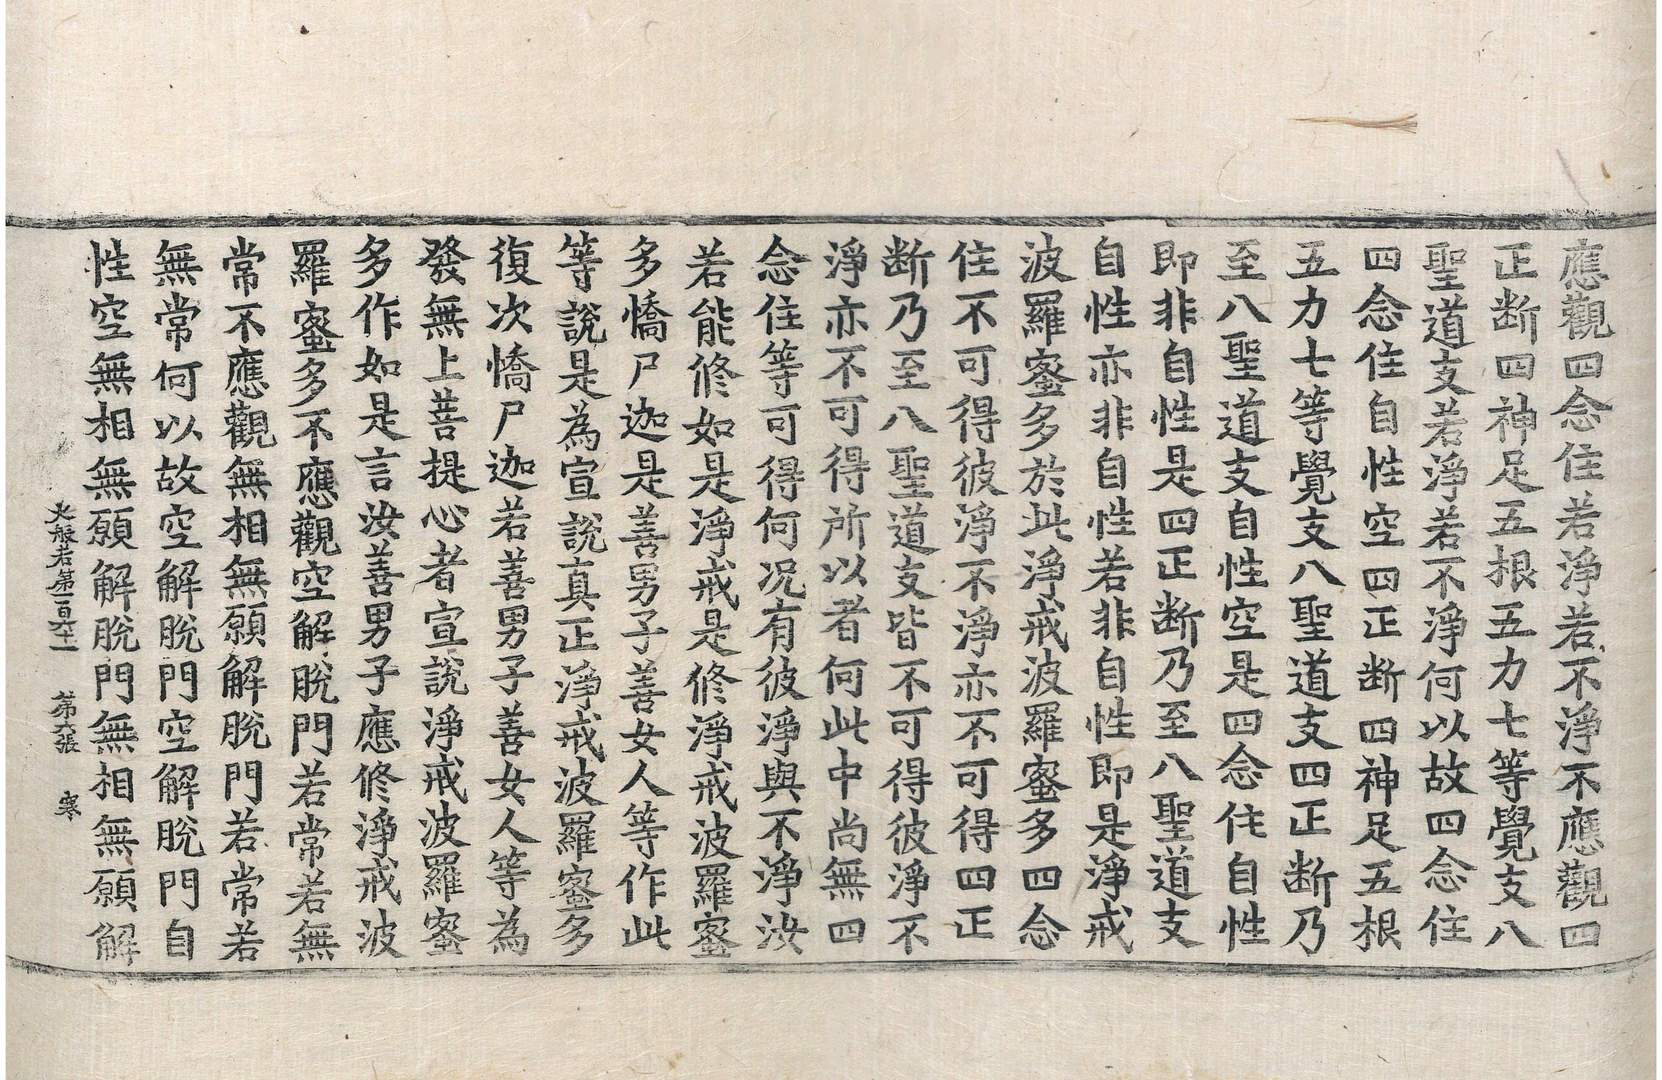 應觀四念住若淨若不淨不應觀四
正断四神足五根五力七等覺支八
聖道支若淨若不淨何以故四念住
四念住自性空四正断四神足五根
五力七等覺支八聖道支四正断乃
至八聖道支自性空是四念住自性
即非自性是四正断乃至八聖道支
自性亦非自性若非自性即是淨戒
波羅蜜多於此淨戒波羅蜜多四念
住不可得彼淨不淨亦不可得四正
断乃至八聖道支皆不可得彼淨不
淨亦不可得所以者何此中尚無四
念住等可得何况有彼淨與不淨汝
若能修如是淨戒是修淨戒波羅蜜
多憍尸迦是善男子善女人等作此
等說是為宣說真正淨戒波羅蜜多
復次憍尸迦若善男子善女人等為
發無上菩提心者宣說淨戒波羅蜜
多作如是言汝善男子應修淨戒波
羅蜜多不應觀空解脫門若常若無
常不應觀無相無願解脫門若常若
無常何以故空解脫門空解脫門自
性空無相無願解脫門無相無願解
大般若第一百六十一 第六張 寒